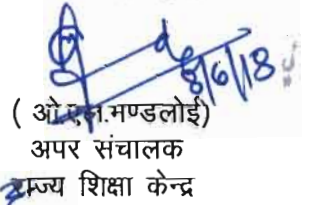 8/6/18
( ओ.एल.मण्डलोई)
अपर संचालक
राज्य शिक्षा केन्द्र